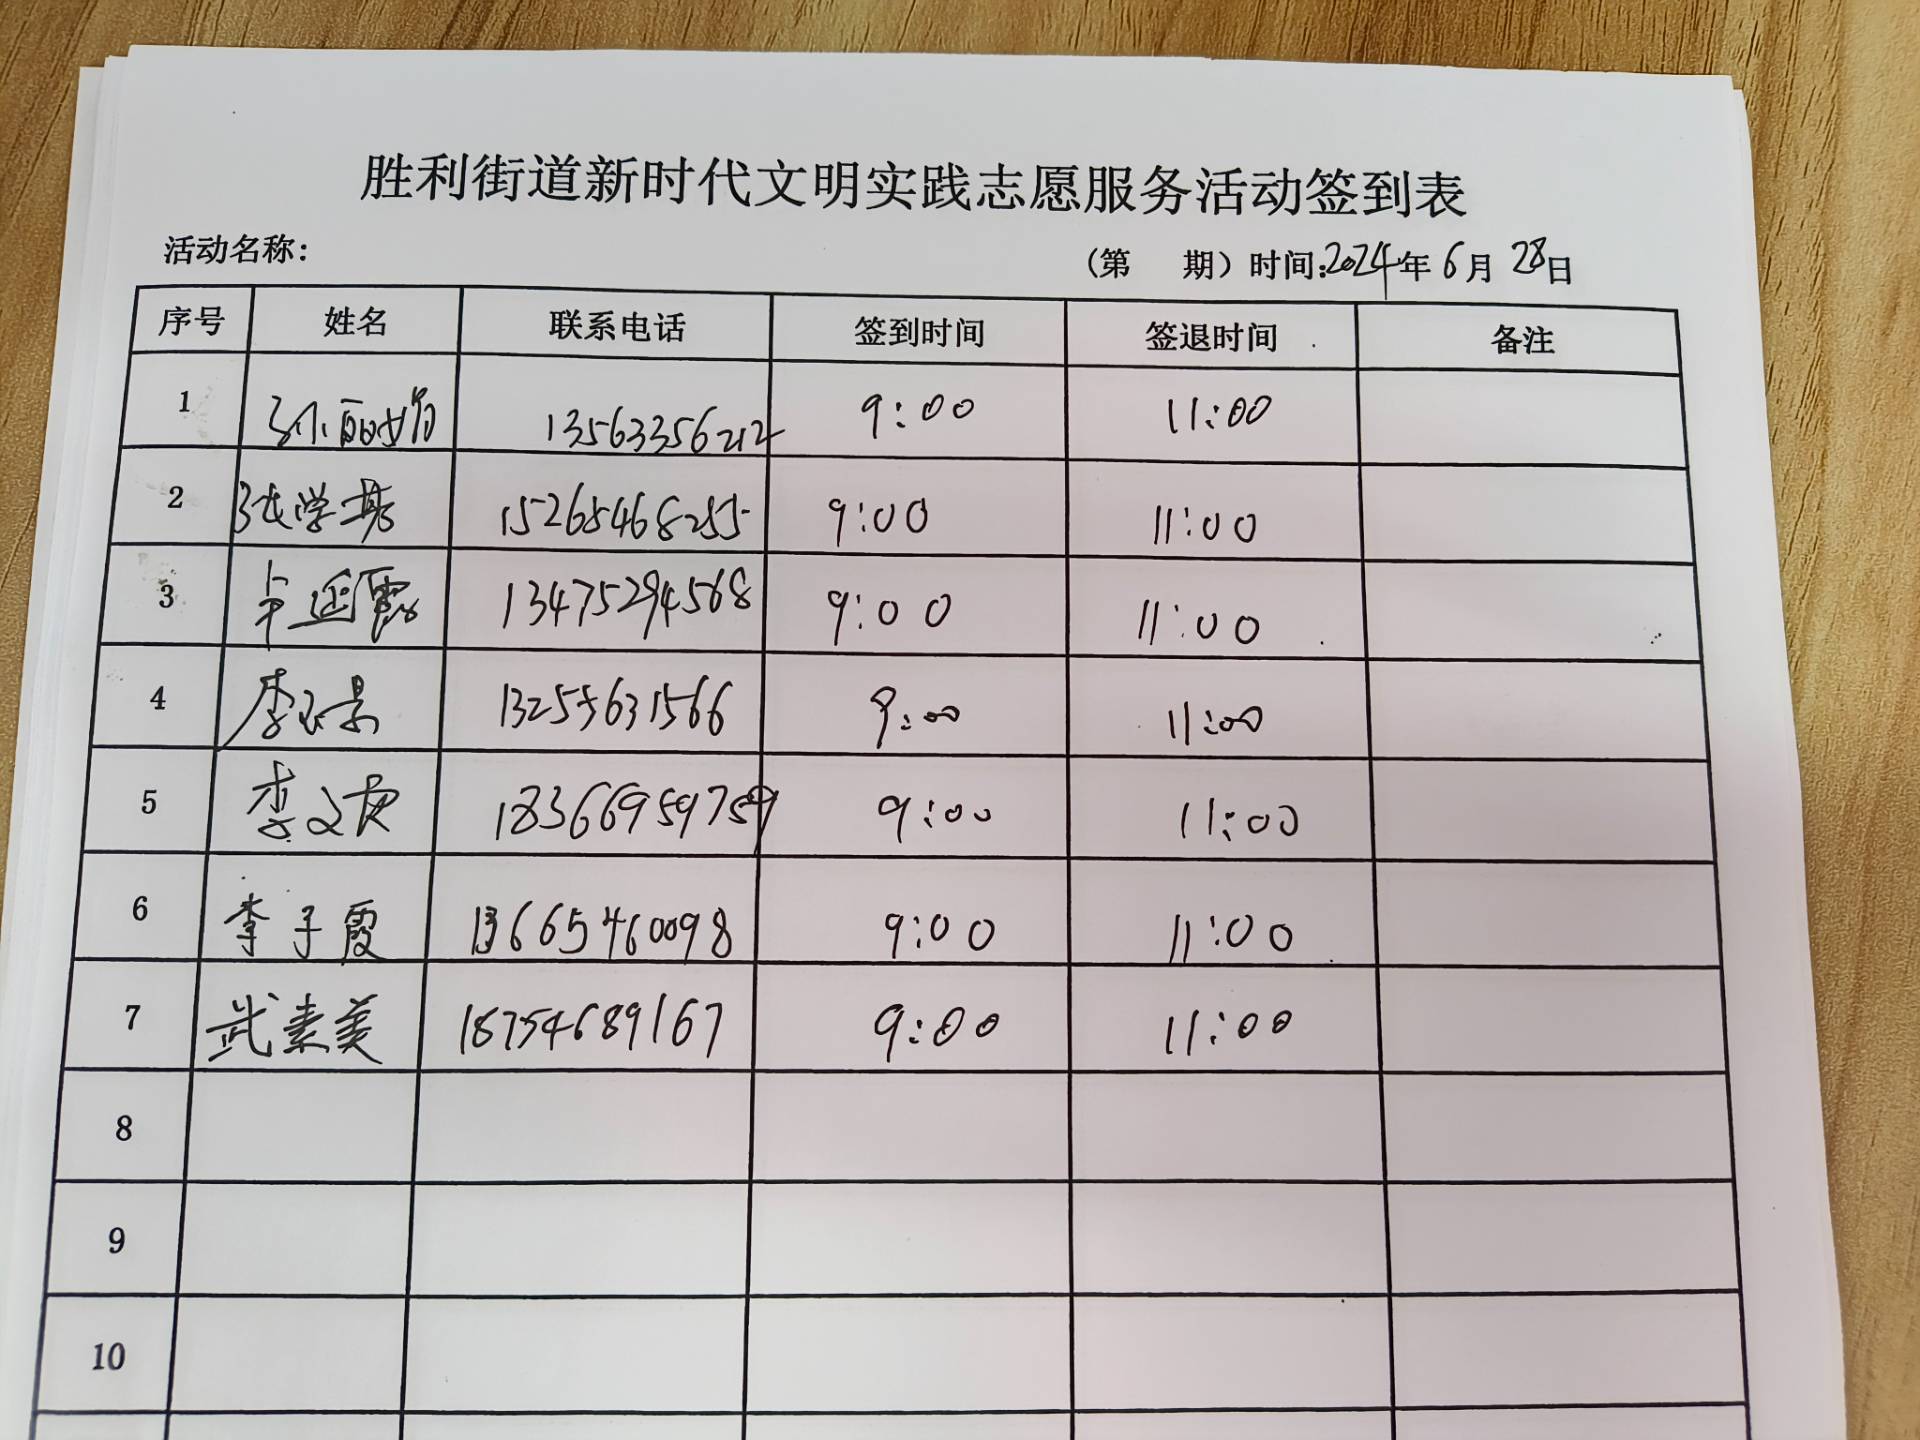 胜利街道新时代文明实践志愿服务活动签到表
活动名称： （第 期）时间:2024年6月28日
序号 姓名 联系电话 签到时间 签退时间 备注
1 孙丽娟 13563356212 9:00 11:00
2 张学慧 15265468255 9:00 11:00
3 卓延霞 13475294568 9:00 11:00
4 李玉景 13255631566 9:00 11:00
5 李文 18366959759 9:00 11:00
6 李子霞 13665460098 9:00 11:00
7 武素美 18754689167 9:00 11:00
8
9
10